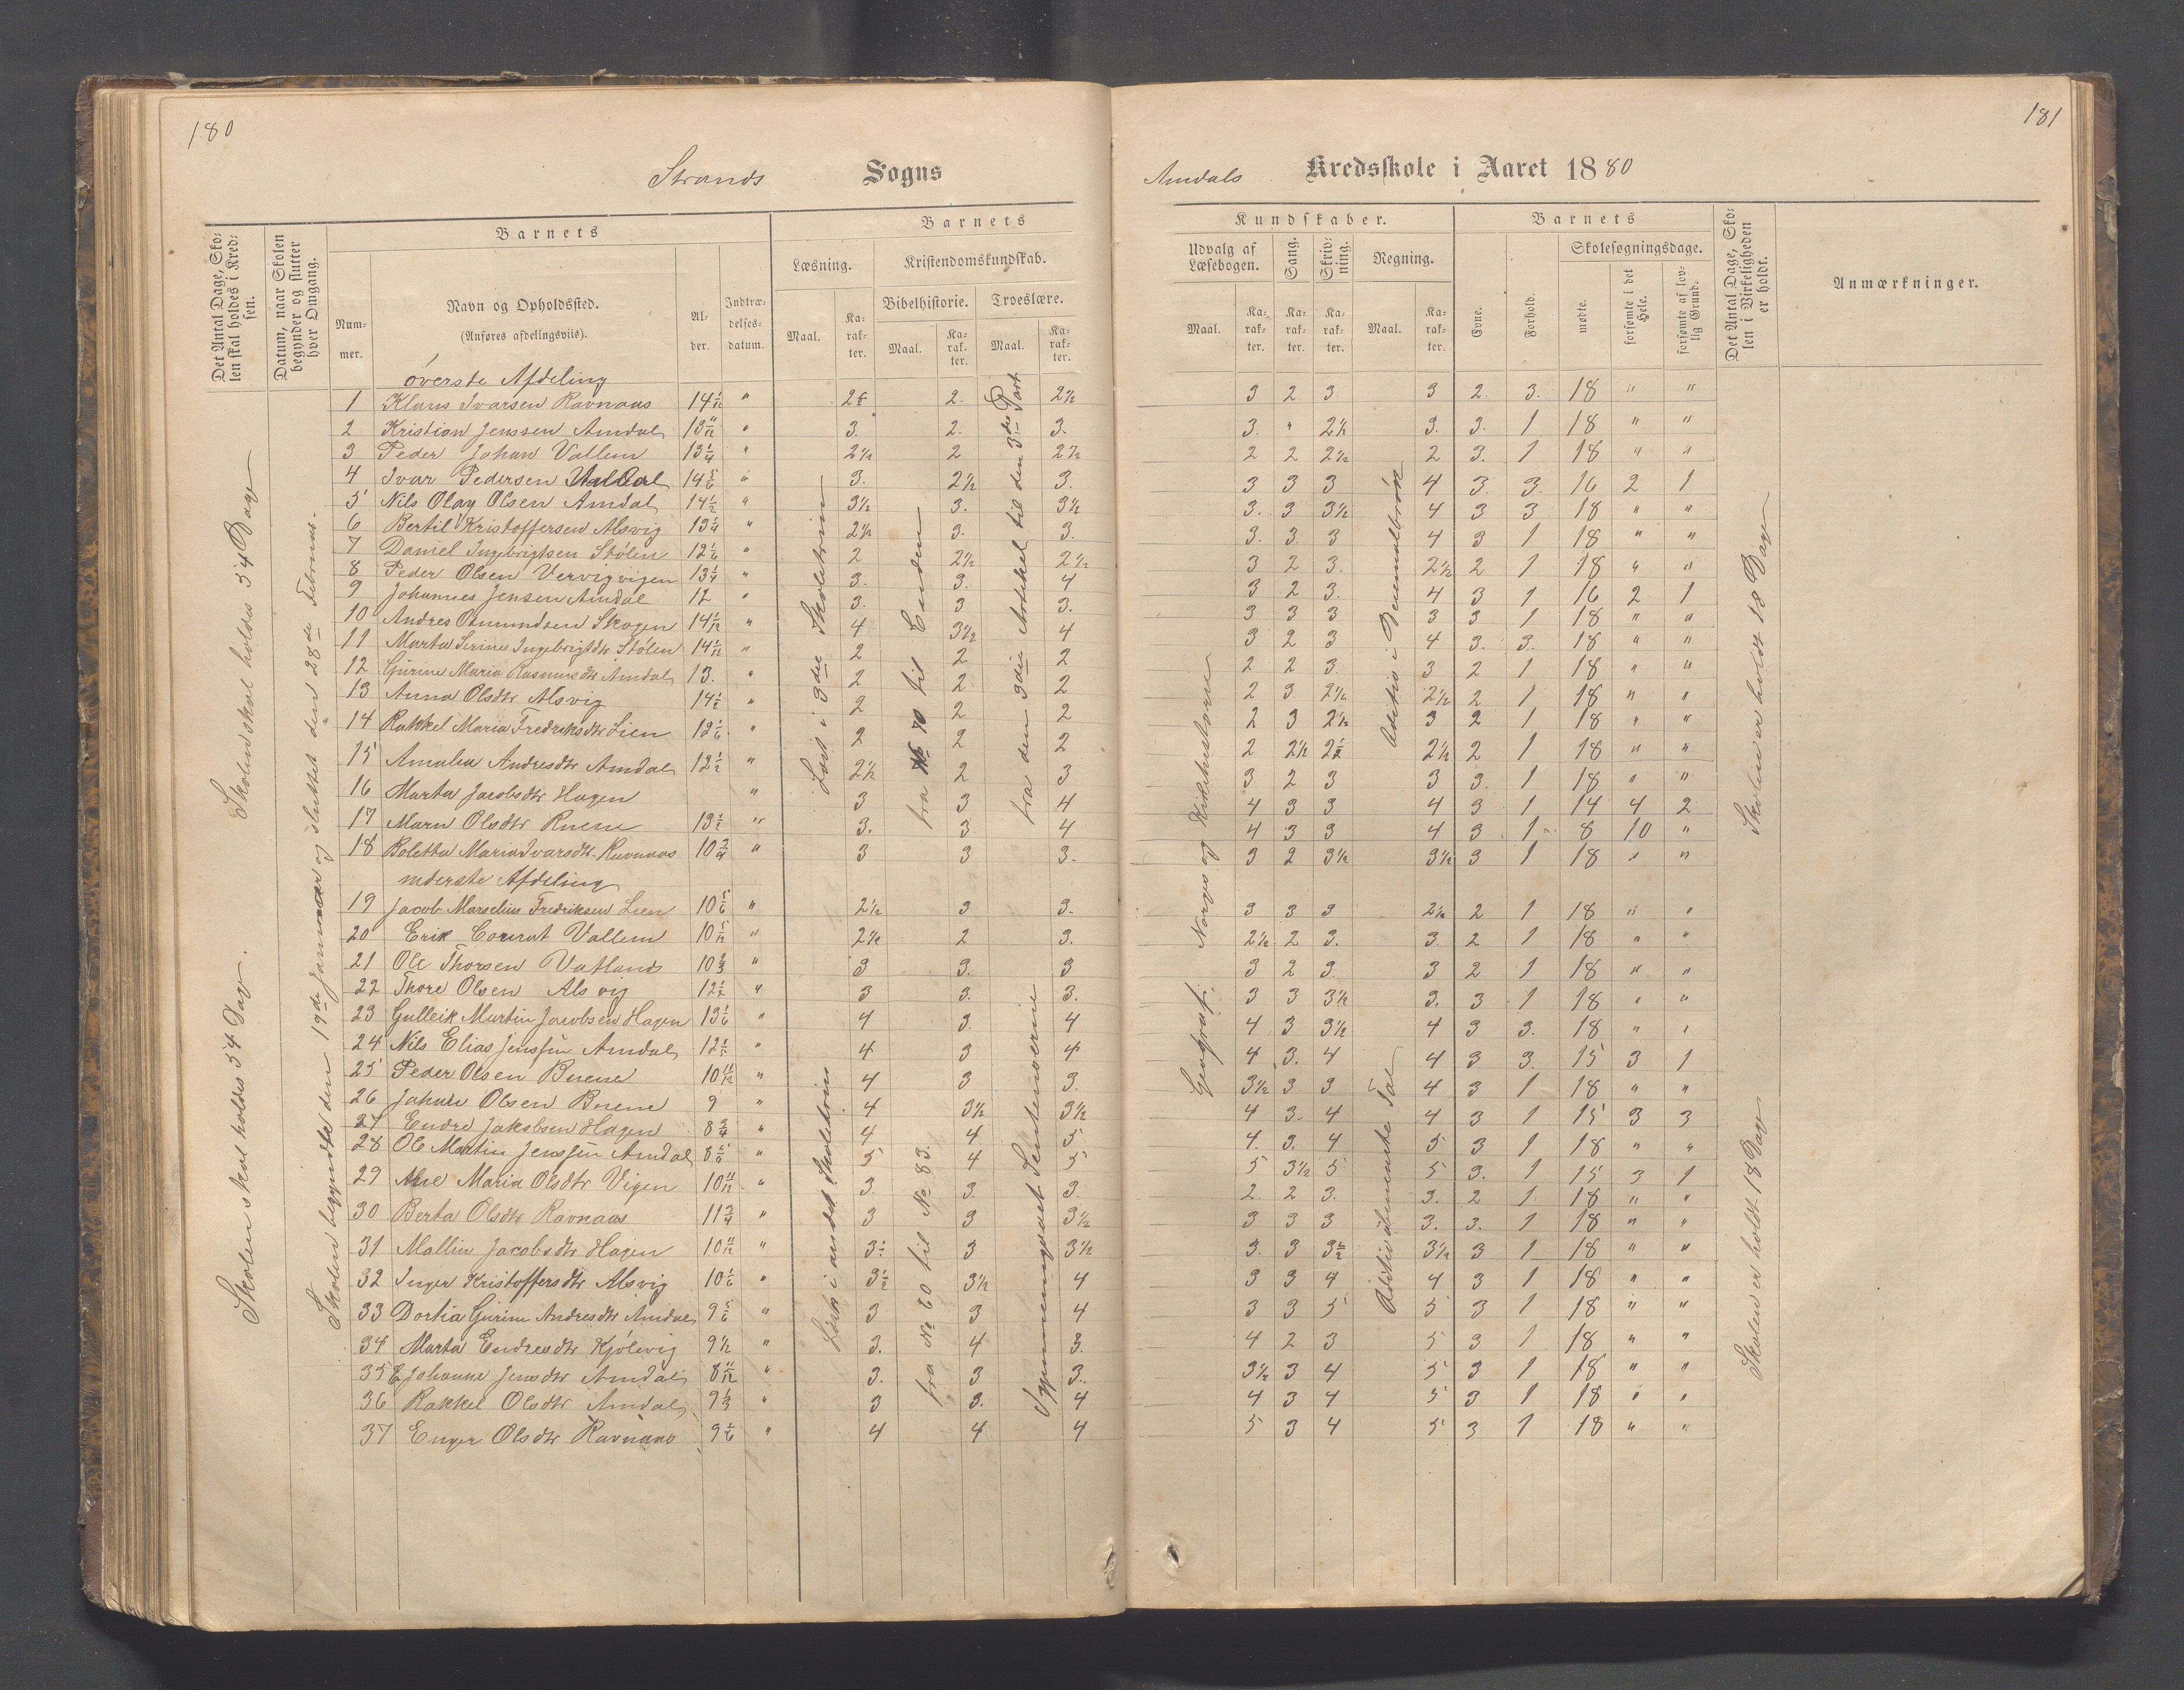 180
Strands Sogns
Det Antal Dage, Skolen skal holdes i Kredsen.
Datum, naar Skolen begynder og slutter hver Omgang.
Barnets
Nummer.
Navn og Opholdssted.
(Anføres afdelingsviis).
Alder.
Indtrædelsesdatum.
Barnets
Læsning.
Kristendomskundskab.
Bibelhistorie.
Troeslære.
Maal.
Karakter.
Maal.
Karakter.
Maal.
Karakter.
Skolen skal holdes 54 Dage
Skolen skal holdes 54 Dage.
Skolen begyndte den 19de Januar og sluttet den 28de Februar.
Læst i 3die Skoletrin
fra 70 til Enden
fra den 3die Artikel til den 3die Part
Læst i andet Skoletrin
fra No 60 til No 83.
øverste Afdeling
1 Klaus Ivarsen Ravnaas 14 1/12 " 2½ 2. 2½
2 Kristian Jenssen Amdal 13 11/12 " 3. 2. 3.
3 Peder Johan Vallem 13 1/4 " 2½ 2 2½
4 Ivar Pedersen 14 5/6 " 3. 2½ 3.
5 Nils Olay Olsen Amdal 14½ " 3½ 3. 3½
6 Bertil Kristoffersen Alsvig 13 1/4 " 2½ 3. 3.
7 Daniel Ingebrigtsen Stølen 12 1/6 " 2 2½ 2½
8 Peder Olsen Vervigvigen 13 1/4 " 3. 3. 4
9 Johannes Jensen Amdal 12 " 3. 3 3.
10 Andres Osmundsen Skogen 14 1/12 " 4 3½ 4
11 Marta Serine Ingebrigtdtr Stølen 14 1/12 " 2 2 2
12 Gurine Maria Rasmusdtr Amdal 13. " 2 2 2
13 Anna Olsdtr Alsvig 14½ " 2 2 2
14 Rakkel Maria Fredriksdtr Lien 12 1/6 " 2 2 2
15 Amalia Andresdtr Amdal 12½ " 2½ 2 3
16 Marta Jacobsdtr Hagen " 3 3 4
17 Maru Olsdtr Ruene 13½ " 3. 3. 4
18 Boletta Maria Ivarsdtr Ravnaas 10 3/4 " 3 3 3.
nederste Afdeling
19 Jacob Marselius Fredriksen Lien 10 5/6 " 2½ 3 3.
20 Erik Conrat Vallem 10 5/12 " 2½ 2 3.
21 Ole Thorsen Vatland 10 2/3 " 3 3. 3
22 Thore Olsen Alsvig 12½ " 3 3. 3.
23 Gulleik Martin Jacobsen Hagen 13 1/6 " 4 3. 4
24 Nils Elias Jenssen Amdal " 4 3 4
25 Peder Olsen Buene 10 11/12 " 4 3 3.
26 Johan Olsen Buene 9 " 4 3½ 3½
27 Endre Jakobsen Hagen 8 3/4 " 4 4 5
28 Ole Martin Jenssen Amdal 8 5/6 " 5 4 5
29 Ane Maria Olsdtr Vigen 10 11/12 " 3. 3. 3.
30 Berta Olsdtr Ravnaas 11 3/4 " 3 3 3½
31 Mallin Jacobsdtr Hagen 10 11/12 " 3½ 3 3½
32 Inger Kristoffersdtr Alsvig 10 1/6 " 3½ 3½ 4
33 Dortia Gurine Andresdtr Amdal 9 5/6 " 3 3 4
34 Marta Endresdtr Kjølevig 9½ " 3. 4 3.
35 Johanne Jensdtr Amdal 8 11/12 " 3. 3 3.
36 Rakkel Olsdtr Amdal 9 1/3 " 3 3. 4
37 Enger Olsdtr Ravnaas 9 1/6 " 4 4 4
181
Amdals Kredsskole i Aaret 1880
Kundskaber.
Udvalg af Læsebogen.
Sang.
Skrivning.
Regning.
Maal.
Karakter.
Karakter.
Karakter.
Maal.
Karakter.
Barnets
Evne.
Forhold.
Skolesøgningsdage.
mødte.
forsømte i det Hele.
forsømte af lovlig Grund.
Det Antal Dage, Skolen i Virkeligheden er holdt.
Anmærkninger.
Norges og Kirkehistorie
Geografi.
Aditio i Decimalbrøk
Aditio ubenævnte Tal
Skolen er holdt 18 Dage
Skolen er holdt 18 Dage
3 2 3 3 2. 3. 18 " "
3. " 2½ 3. 3. 1 18 " "
2 2 2½ 2 3. 1 18 " "
3 3 3 4 3. 3. 16 2 1
3. 3 3½ 4 3 3 18 " "
3. 3. 3 4 3 1 18 " "
3 2 3. 2½ 2 1 18 " "
3 2 3. 4 3 1 16 2 1
3 3 3 3 3 1 18 " "
3 2 3 4 3. 3. 18 " "
2 2 3. 3 2 1 18 " "
2 3. 2½ 2½ 2 1 18 " "
2 3 2½ 3 2 1 18 " "
2 2½ 2½ 2½ 2 1 18 " "
3 2 3 3 3. 1 18 " "
4 3 3 4 3 1 14 4 2
4 3 3 4. 3 1 8 10 "
3 2 3½ 3½ 3 1 18 " "
3 3 3 2½ 2 1 18 " "
2½ 2 3. 3 2 1 18 " "
3 2 3. 3 2 1 18 " "
3 3 3½ 3. 3 1 18 " "
4 3 3½ 4 3 3. 18 " "
4 3. 4 4 3 3. 15 3 1
3½ 3 3 4 3 1 18 " "
4 3 4 4 3 1 15 3 3
4. 3. 4 5 3 1 18 " "
5 3½ 5 5 3. 1 15 3 1
2. 2 3. 3. 2 1 18 " "
3 3 3 3. 3. 1 18 " "
3. 3 3½ 3½ 3 1 18 " "
3 3 4 4 3 1 18 " "
3 3 5 5 3 1 18 " "
4 2 3 5 3 1 18 " "
3½ 3 4 5 3 1 18 " "
4 3 4 5 3 1 18 " "
5 3 4 5 3 1 18 " "